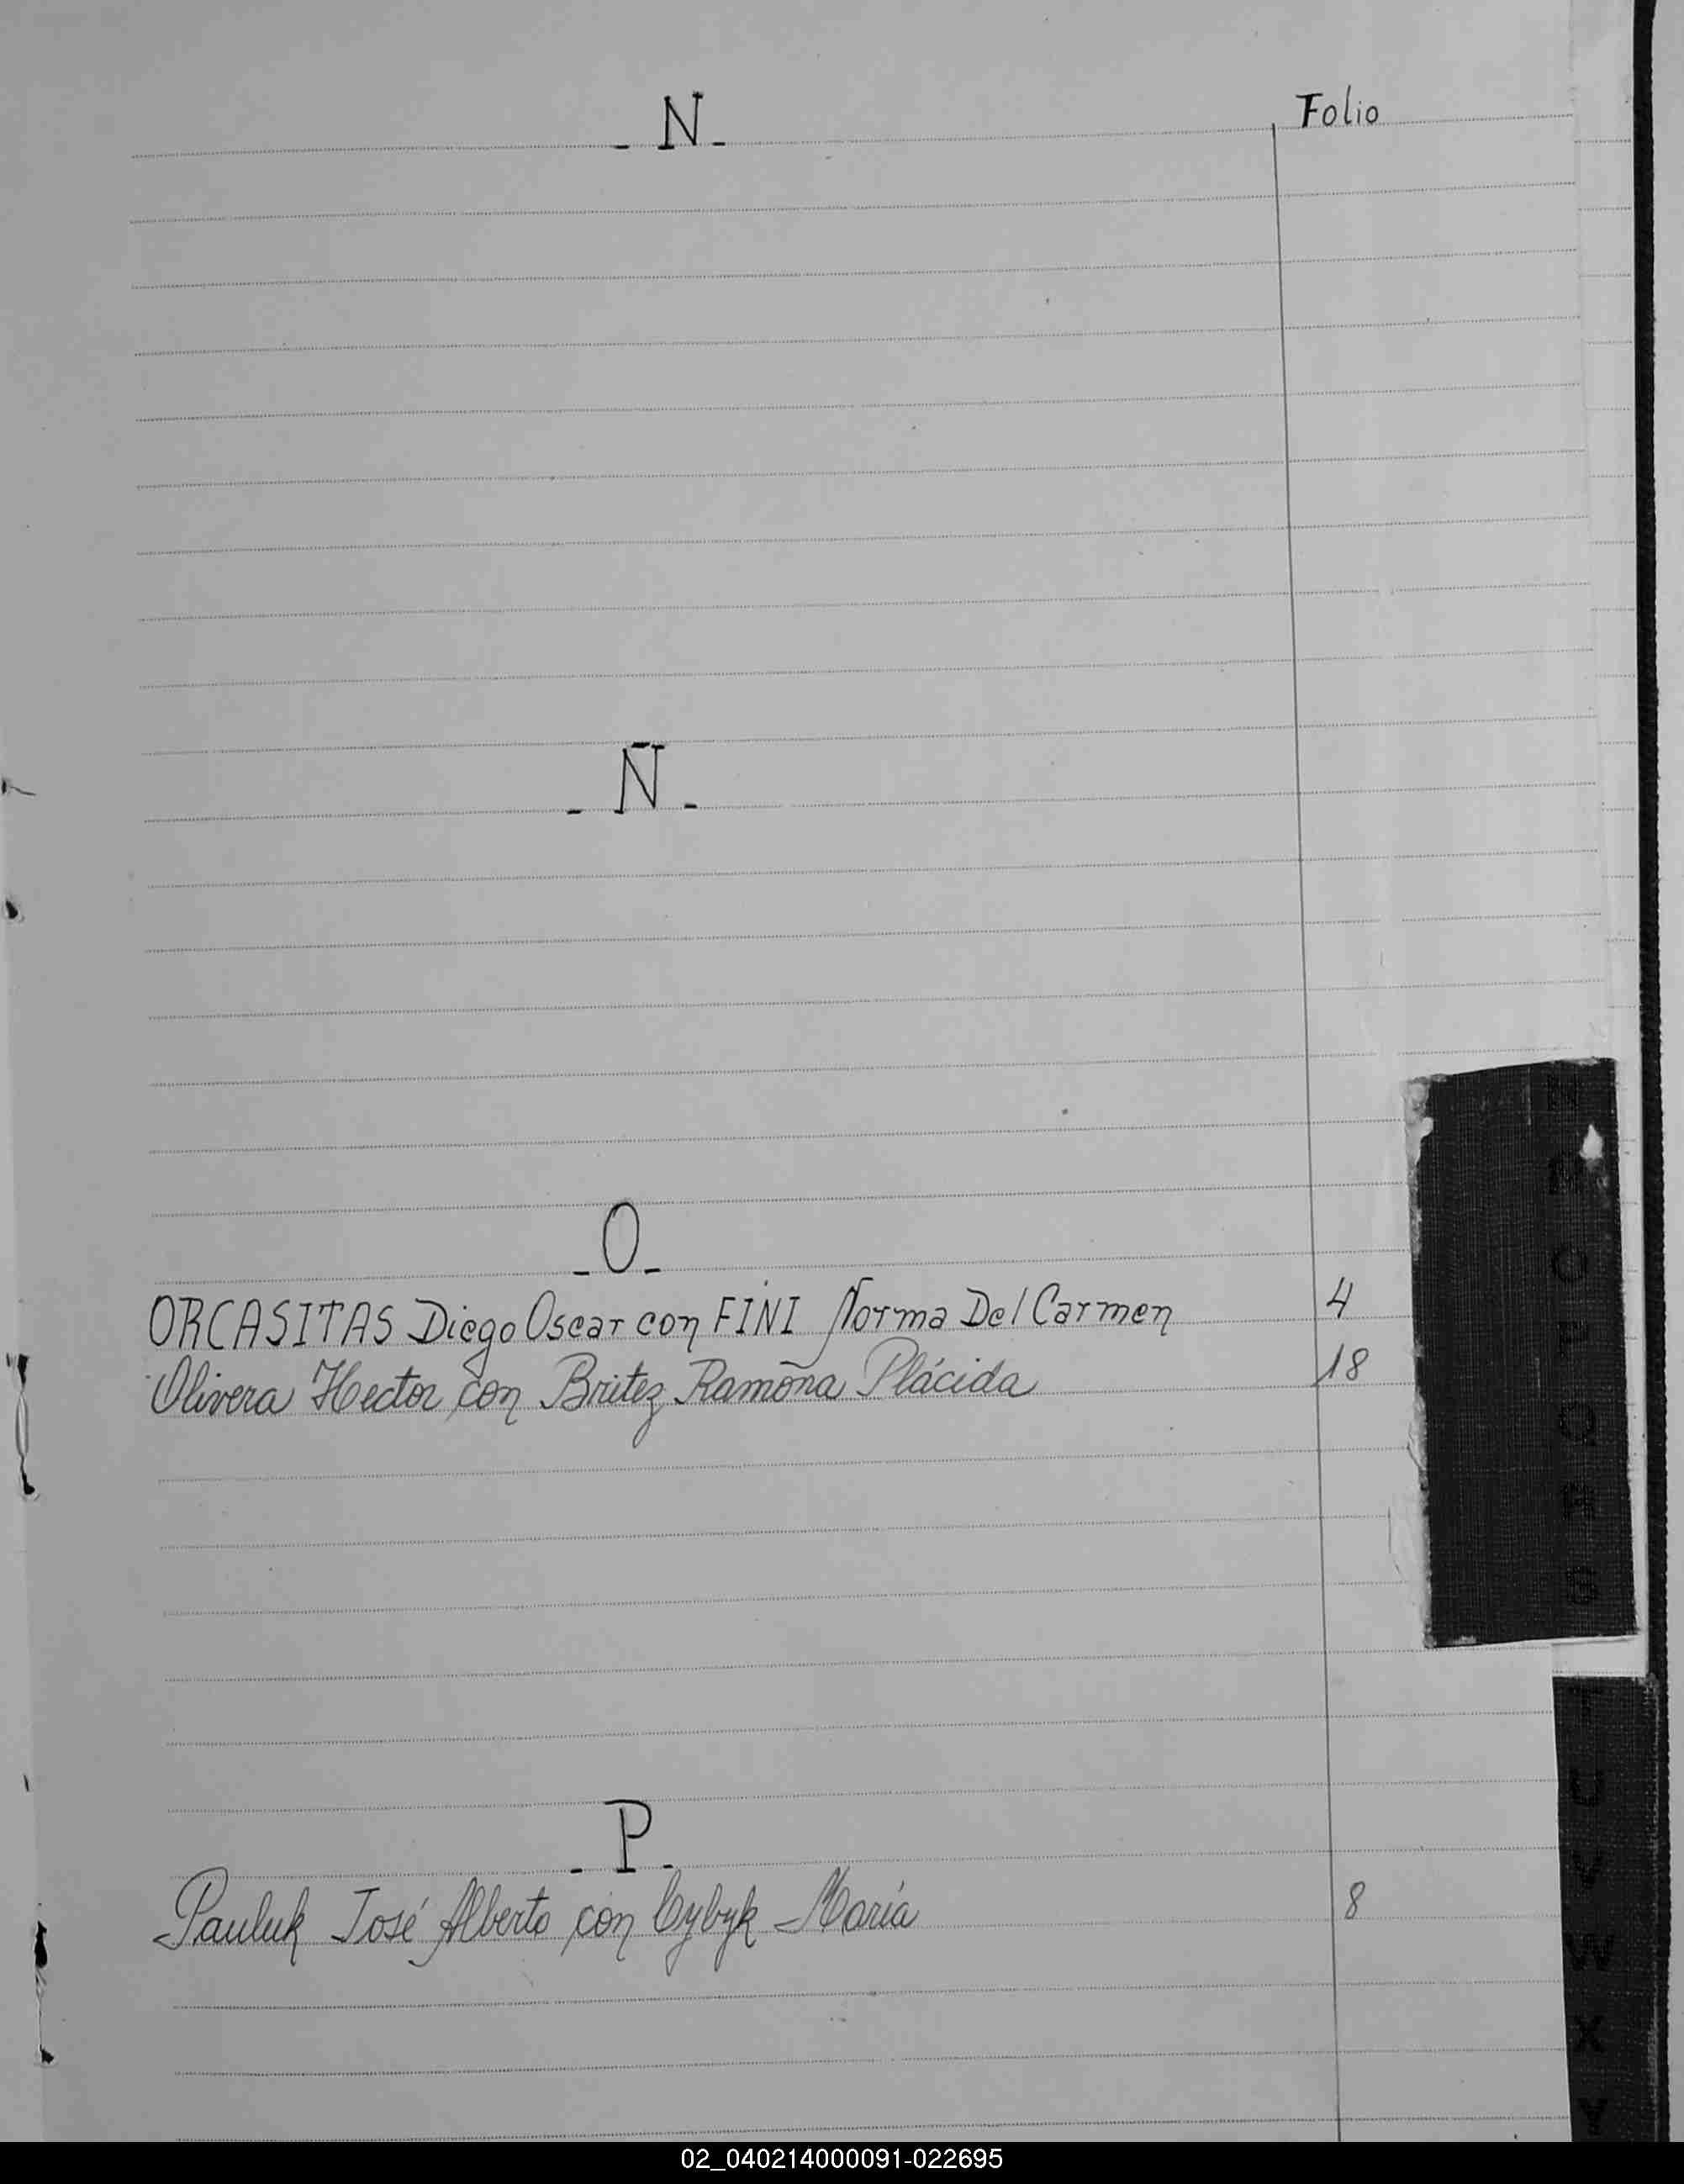 - N - Folio
- Ñ -
- O -
ORCASITAS Diego Oscar con FINI Norma Del Carmen 4
Olivera Hector con Britez Ramona Plácida 18
- P -
Pauluk José Alberto con Cybyk María 8
N
O
Q
R
S
U
V
W
X
Y
02_040214000091-022695